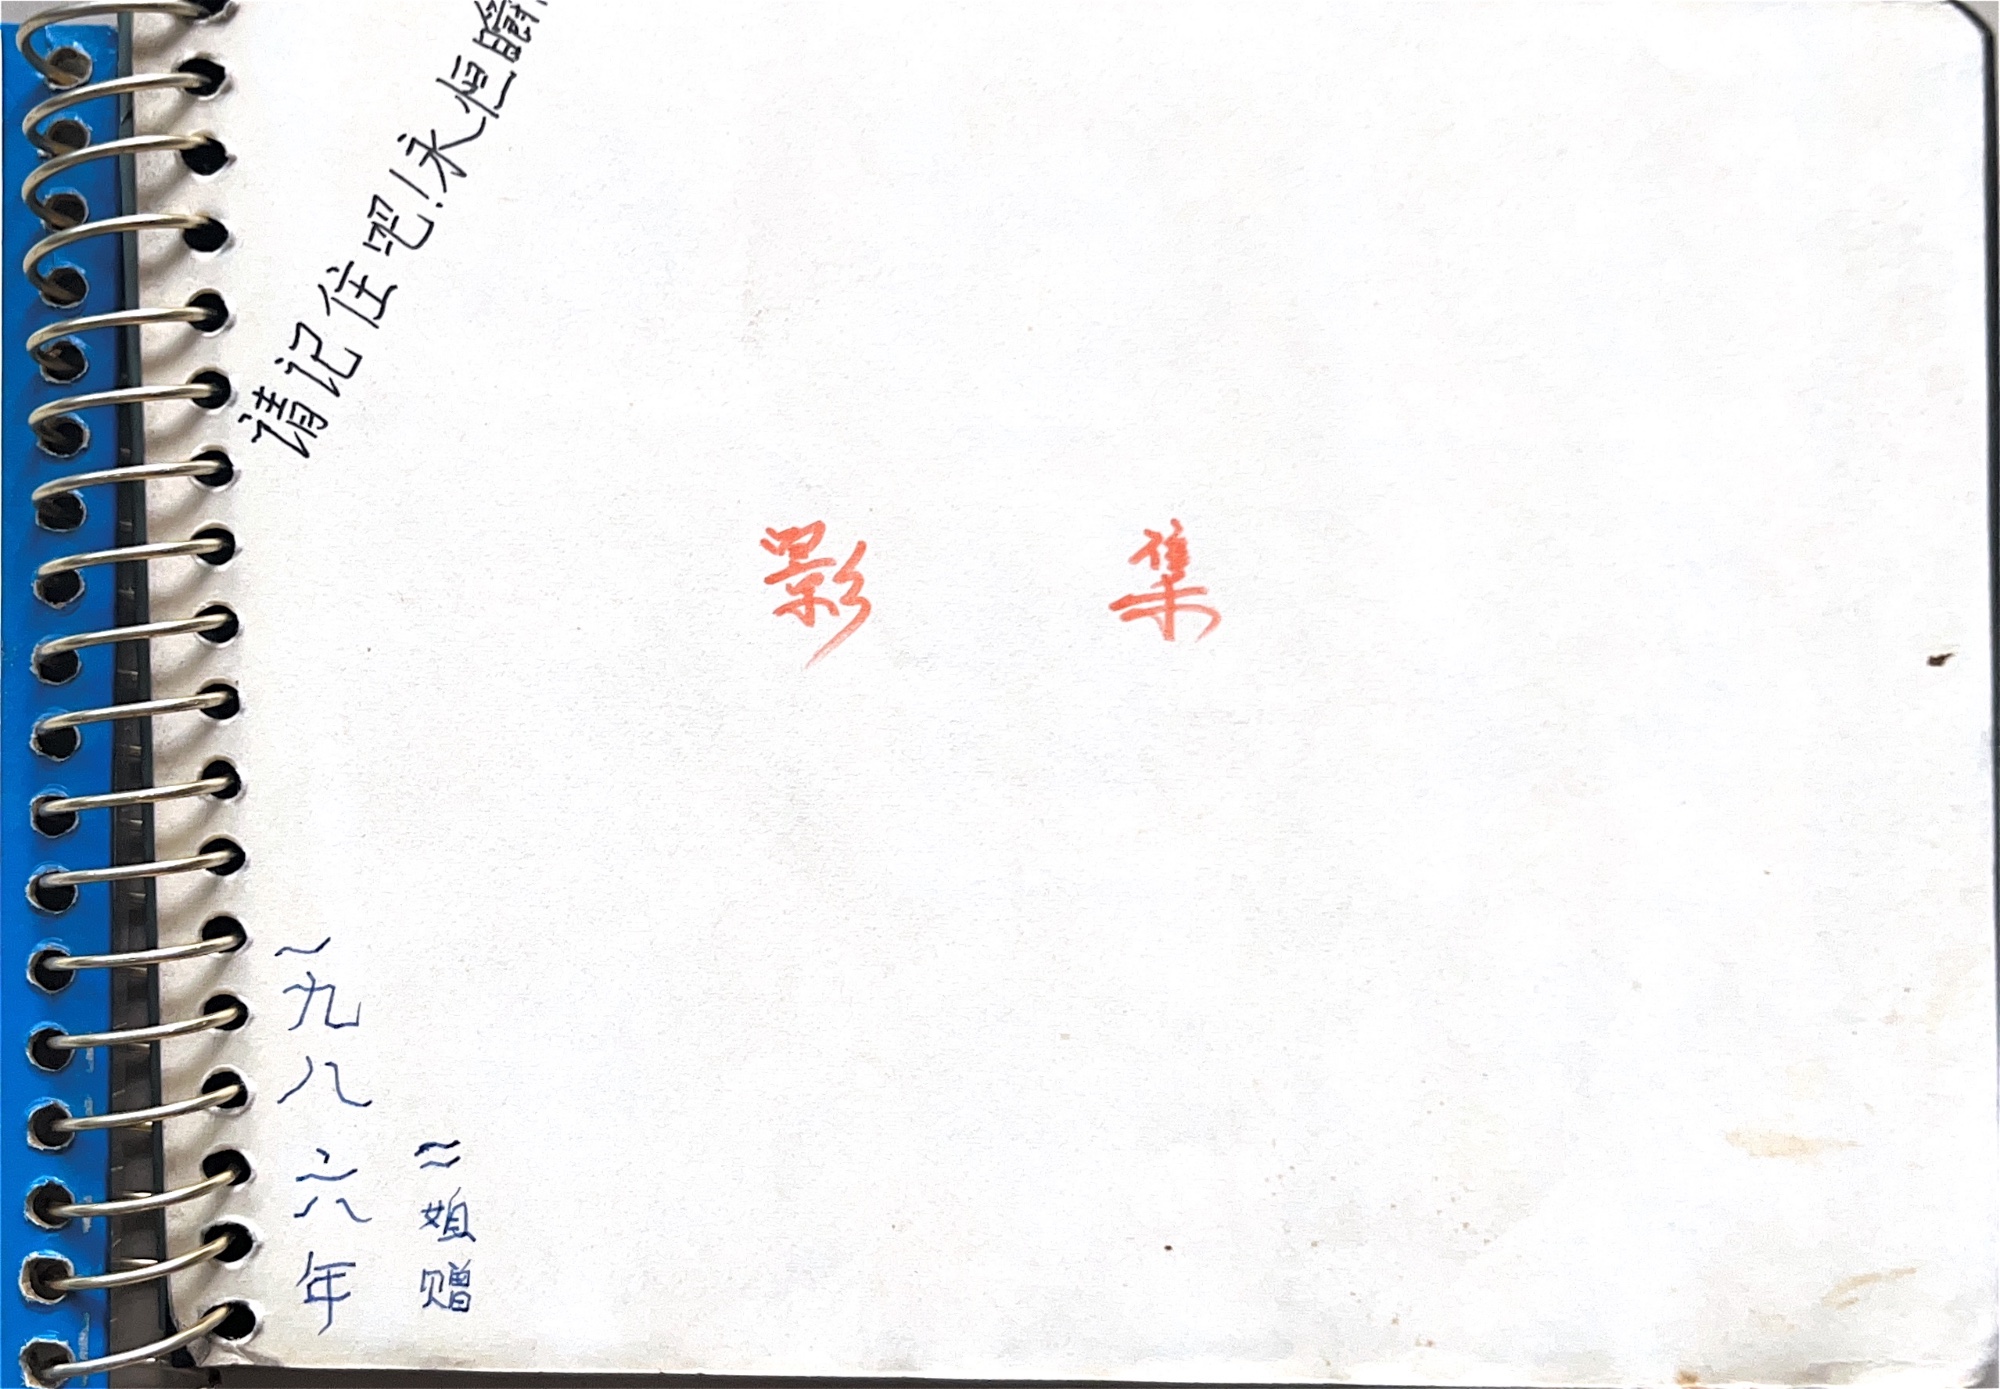 请记住吧！永恒瞬
影 集
一九八六年
二姐赠